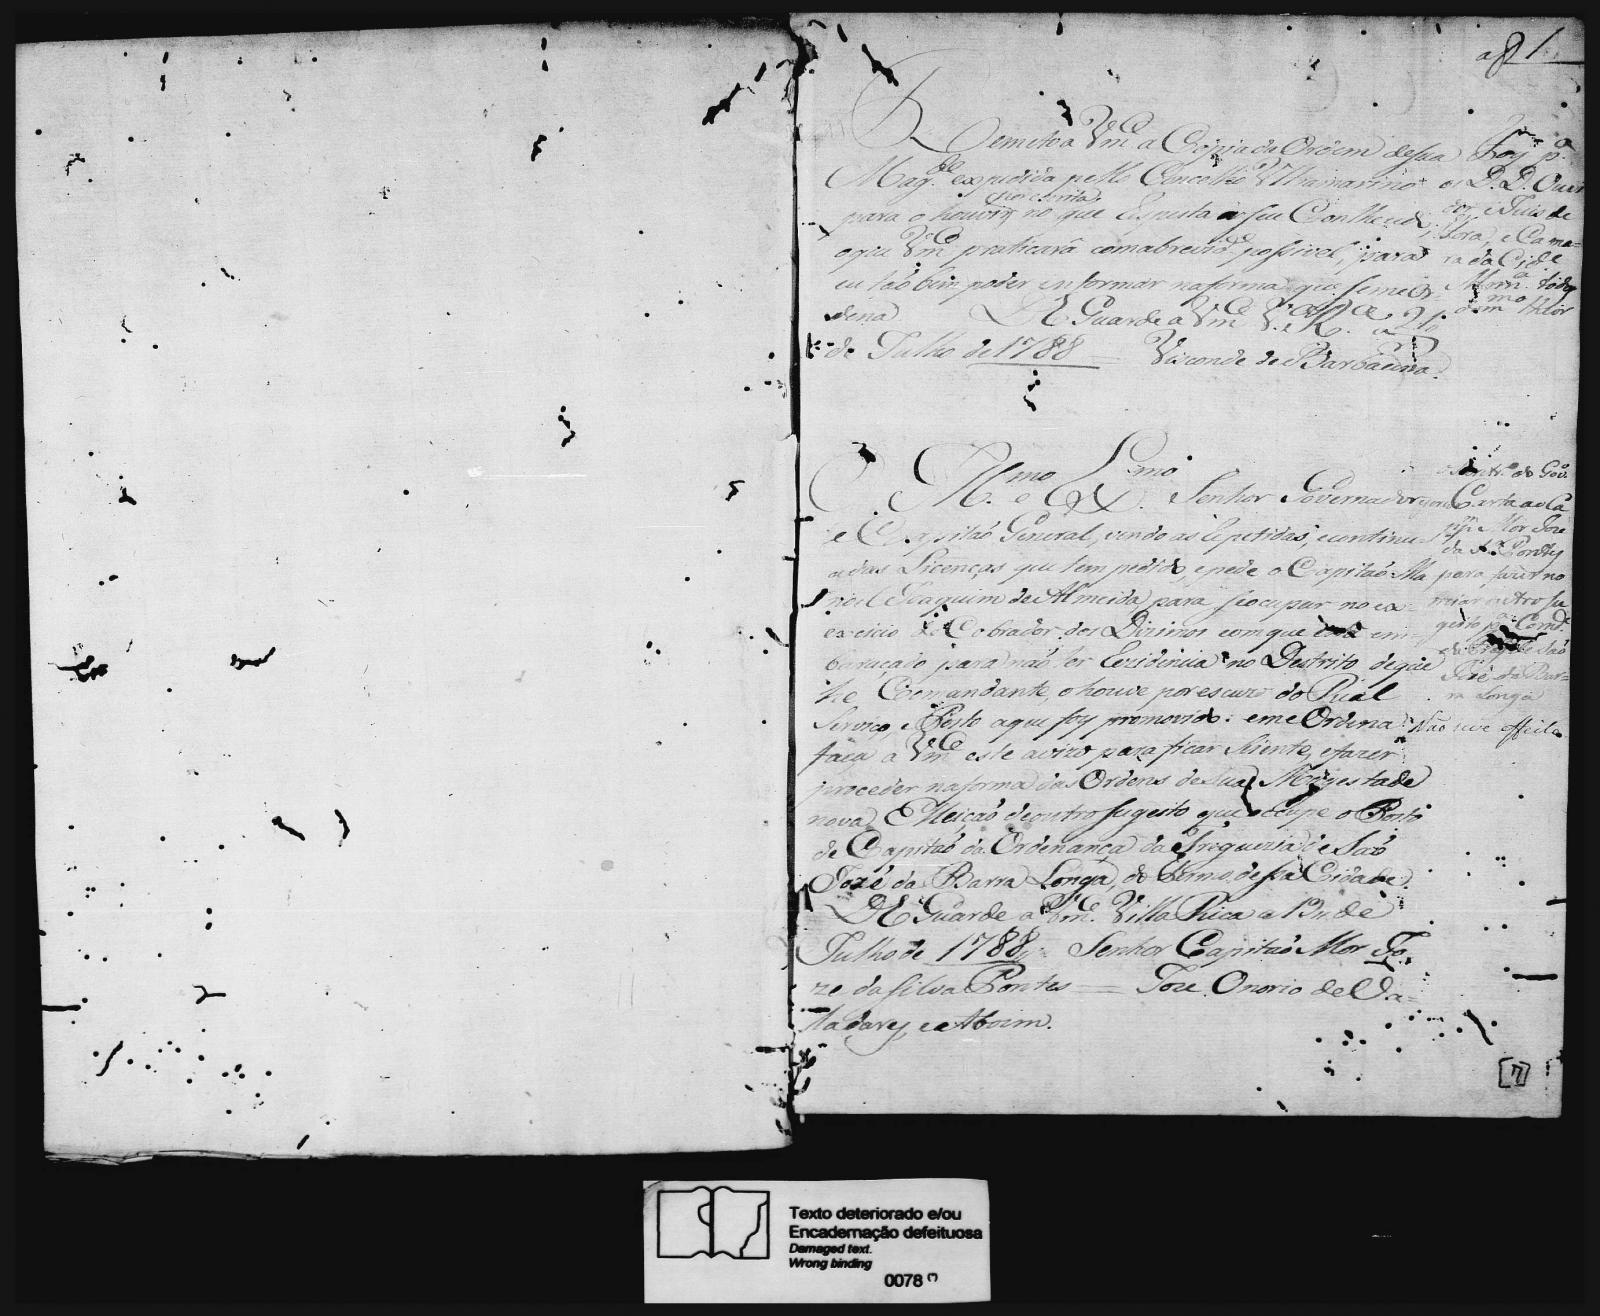 a 81
Remeto a Vm.ce a Copia da Ordem de Sua
Mag.de expedida pello Concelho Ultramarino
para o houvir por escrito no que Respeita a seu
o que Vm.ce praticará com a brevid.e possivel, para
eu tão bem poder informar na forma que se me Or-
dena. D.s Guarde a Vm.ce V.a R.ca a 21
de Julho de 1788 — Visconde de Barbacena.
Foy p.a
os D.D. Ouvi
dor e Juis de
Fora, e Cama-
ra da Cid.e
Marn.a todos
do m.mo theor
Ill.mo e Ex.mo Senhor Governador
e Capitaõ General, vendo as Repetidas, e continu-
adas Licenças que tem pedido, e pede o Capitaõ Ma
noel Joaquim de Almeida para se ocupar no ex-
ercicio de Cobrador dos Dizimos com que está em
baraçado para naõ ter Rezidencia no Destrito de que
he Comandante, o houve por escuzo do Rial
Serviço, e Posto a que foy promovido: e me Ordena
faça a Vm.ce este avizo para ficar Siente, e fazer
proceder na forma das Ordens de Sua Magestade
nova Elleicaõ de outro Sugeito que occupe o Posto
de Capitaõ da Ordenança da Freguezia de Saõ
Jozé da Barra Longa, do Termo dessa Cidade.
D.s Guarde a Vm.ce Villa Rica a 19 de
Julho de 1788 = Senhor Capitaõ Mor Jo-
ze da Silva Pontes — Joze Onorio de Va-
ladares e Aboim.
do Gov.
Carta ao Ca
p.m Mor Joze
da S.a Pontes
para fazer no
mear outro Su
geito p.a Com.de
da Freg.a de Saõ
Jozé da Bar-
ra Longa
Naõ teve effeito
[7]
Texto deteriorado e/ou
Encadernação defeituosa
Damaged text.
Wrong binding
0078 (*)